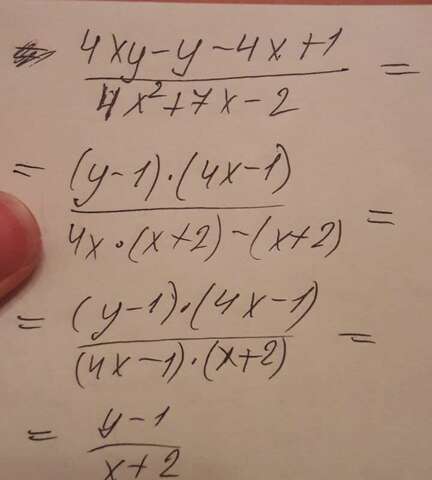 (4xy-y-4x+1)/(4x²+7x-2) =
= ((y-1)·(4x-1))/(4x·(x+2)-(x+2)) =
= ((y-1)·(4x-1))/((4x-1)·(x+2)) =
= (y-1)/(x+2)